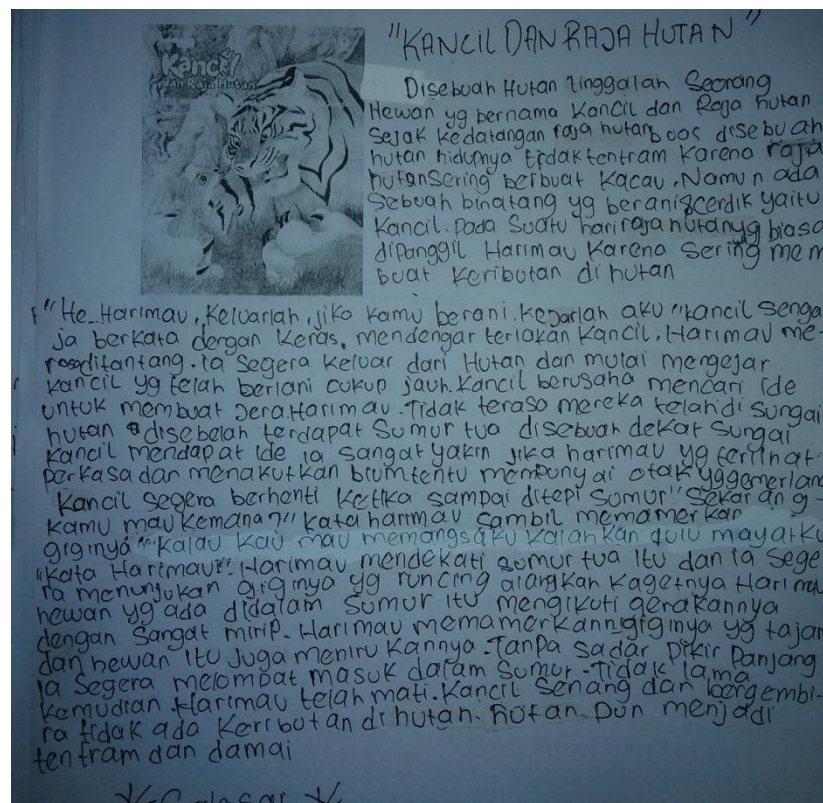 "KANCIL DAN RAJA HUTAN"
Kancil
dan Raja Hutan
Disebuah Hutan tinggalah Seorang
Hewan yg bernama Kancil dan Raja hutan
Sejak kedatangan raja hutan buas disebuah
hutan hidupnya tidak tentram karena raja
hutan sering berbuat kacau. Namun ada
Sebuah binatang yg berani & cerdik yaitu
Kancil. Pada Suatu hari raja hutan yg biasa
dipanggil Harimau Karena Sering mem
buat keributan di hutan
"He.. Harimau, Keluarlah, jika kamu berani. kejarlah aku" kancil senga
ja berkata dengan keras, mendengar teriakan kancil. Harimau me-
rasa ditantang. ia Segera keluar dari Hutan dan mulai mengejar
kancil yg telah berlari cukup jauh. Kancil berusaha mencari ide
untuk membuat jera Harimau. Tidak terasa mereka telah di Sungai
hutan disebelah terdapat Sumur tua disebuah dekat Sungai
Kancil mendapat ide ia sangat yakin jika harimau yg terlihat
perkasa dan menakutkan blum tentu mempunyai otak yg gemerlang
Kancil segera berhenti ketika sampai ditepi sumur "Sekarang
kamu mau kemana?" kata harimau sambil memamerkan
giginya "Kalau kau mau memangsaku kalahkan dulu mayatku
"kata Harimau". Harimau mendekati sumur tua itu dan ia Sege
ra menunjukan giginya yg runcing alangkah kagetnya Harimau
hewan yg ada didalam sumur itu mengikuti gerakannya
dengan Sangat mirip. Harimau memamerkann giginya yg tajam
dan hewan itu juga menirukannya. Tanpa sadar pikir panjang
ia Segera melompat masuk dalam Sumur. Tidak lama
kemudian Harimau telah mati. Kancil Senang dan bergembi-
ra tidak ada keributan di hutan. hutan pun menjadi
tentram dan damai